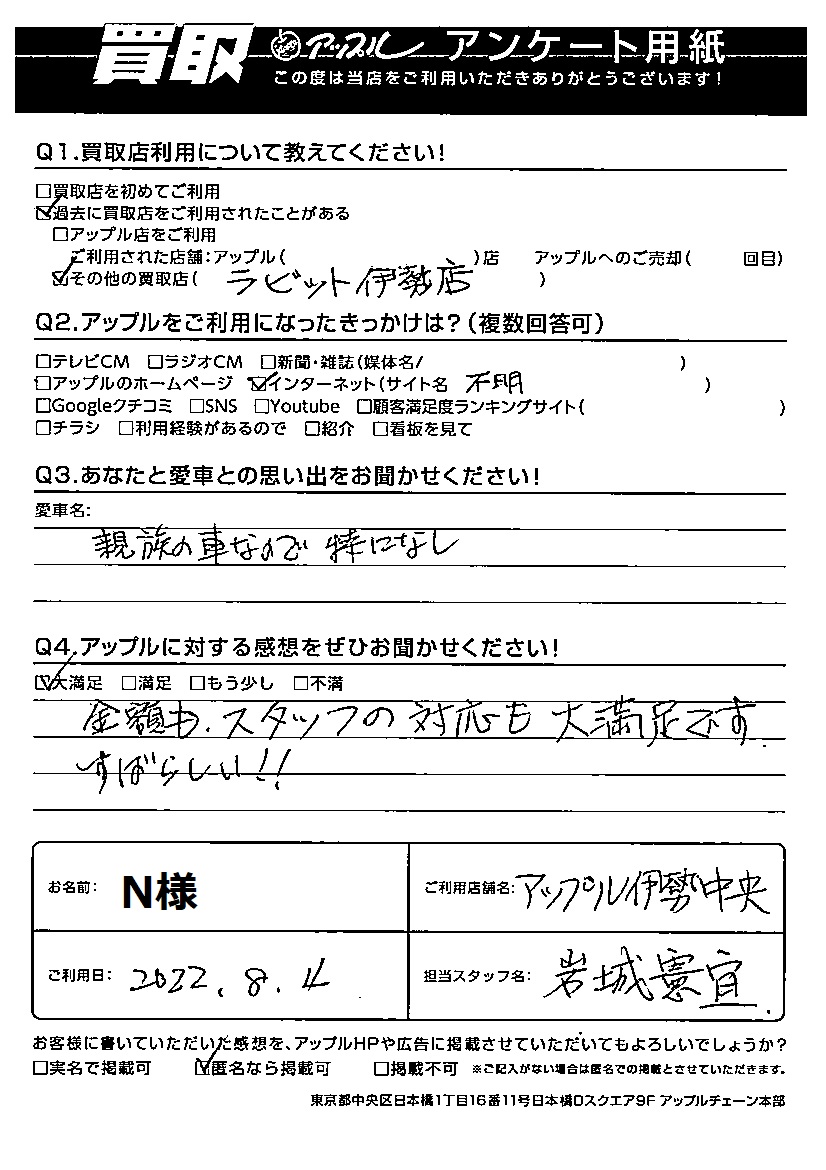 買取 アップル アンケート用紙
この度は当店をご利用いただきありがとうございます!
Q1.買取店利用について教えてください!
□買取店を初めてご利用
☑過去に買取店をご利用されたことがある
□アップル店をご利用
ご利用された店舗:アップル( )店 アップルへのご売却( 回目)
☑その他の買取店( ラビット伊勢店 )
Q2.アップルをご利用になったきっかけは?(複数回答可)
□テレビCM □ラジオCM □新聞・雑誌(媒体名/ )
□アップルのホームページ ☑インターネット(サイト名 不明 )
□Googleクチコミ □SNS □Youtube □顧客満足度ランキングサイト( )
□チラシ □利用経験があるので □紹介 □看板を見て
Q3.あなたと愛車との思い出をお聞かせください!
愛車名:
親族の車なので 特になし
Q4.アップルに対する感想をぜひお聞かせください!
☑大満足 □満足 □もう少し □不満
金額も、スタッフの対応も大満足です
すばらしい!!
お名前: N様 ご利用店舗名:アップル伊勢中央
ご利用日: 2022.8.4 担当スタッフ名: 岩城憲宜
お客様に書いていただいた感想を、アップルHPや広告に掲載させていただいてもよろしいでしょうか?
□実名で掲載可 ☑匿名なら掲載可 □掲載不可 ※ご記入がない場合は匿名での掲載とさせていただきます。
東京都中央区日本橋1丁目16番11号日本橋Dスクエア9F アップルチェーン本部